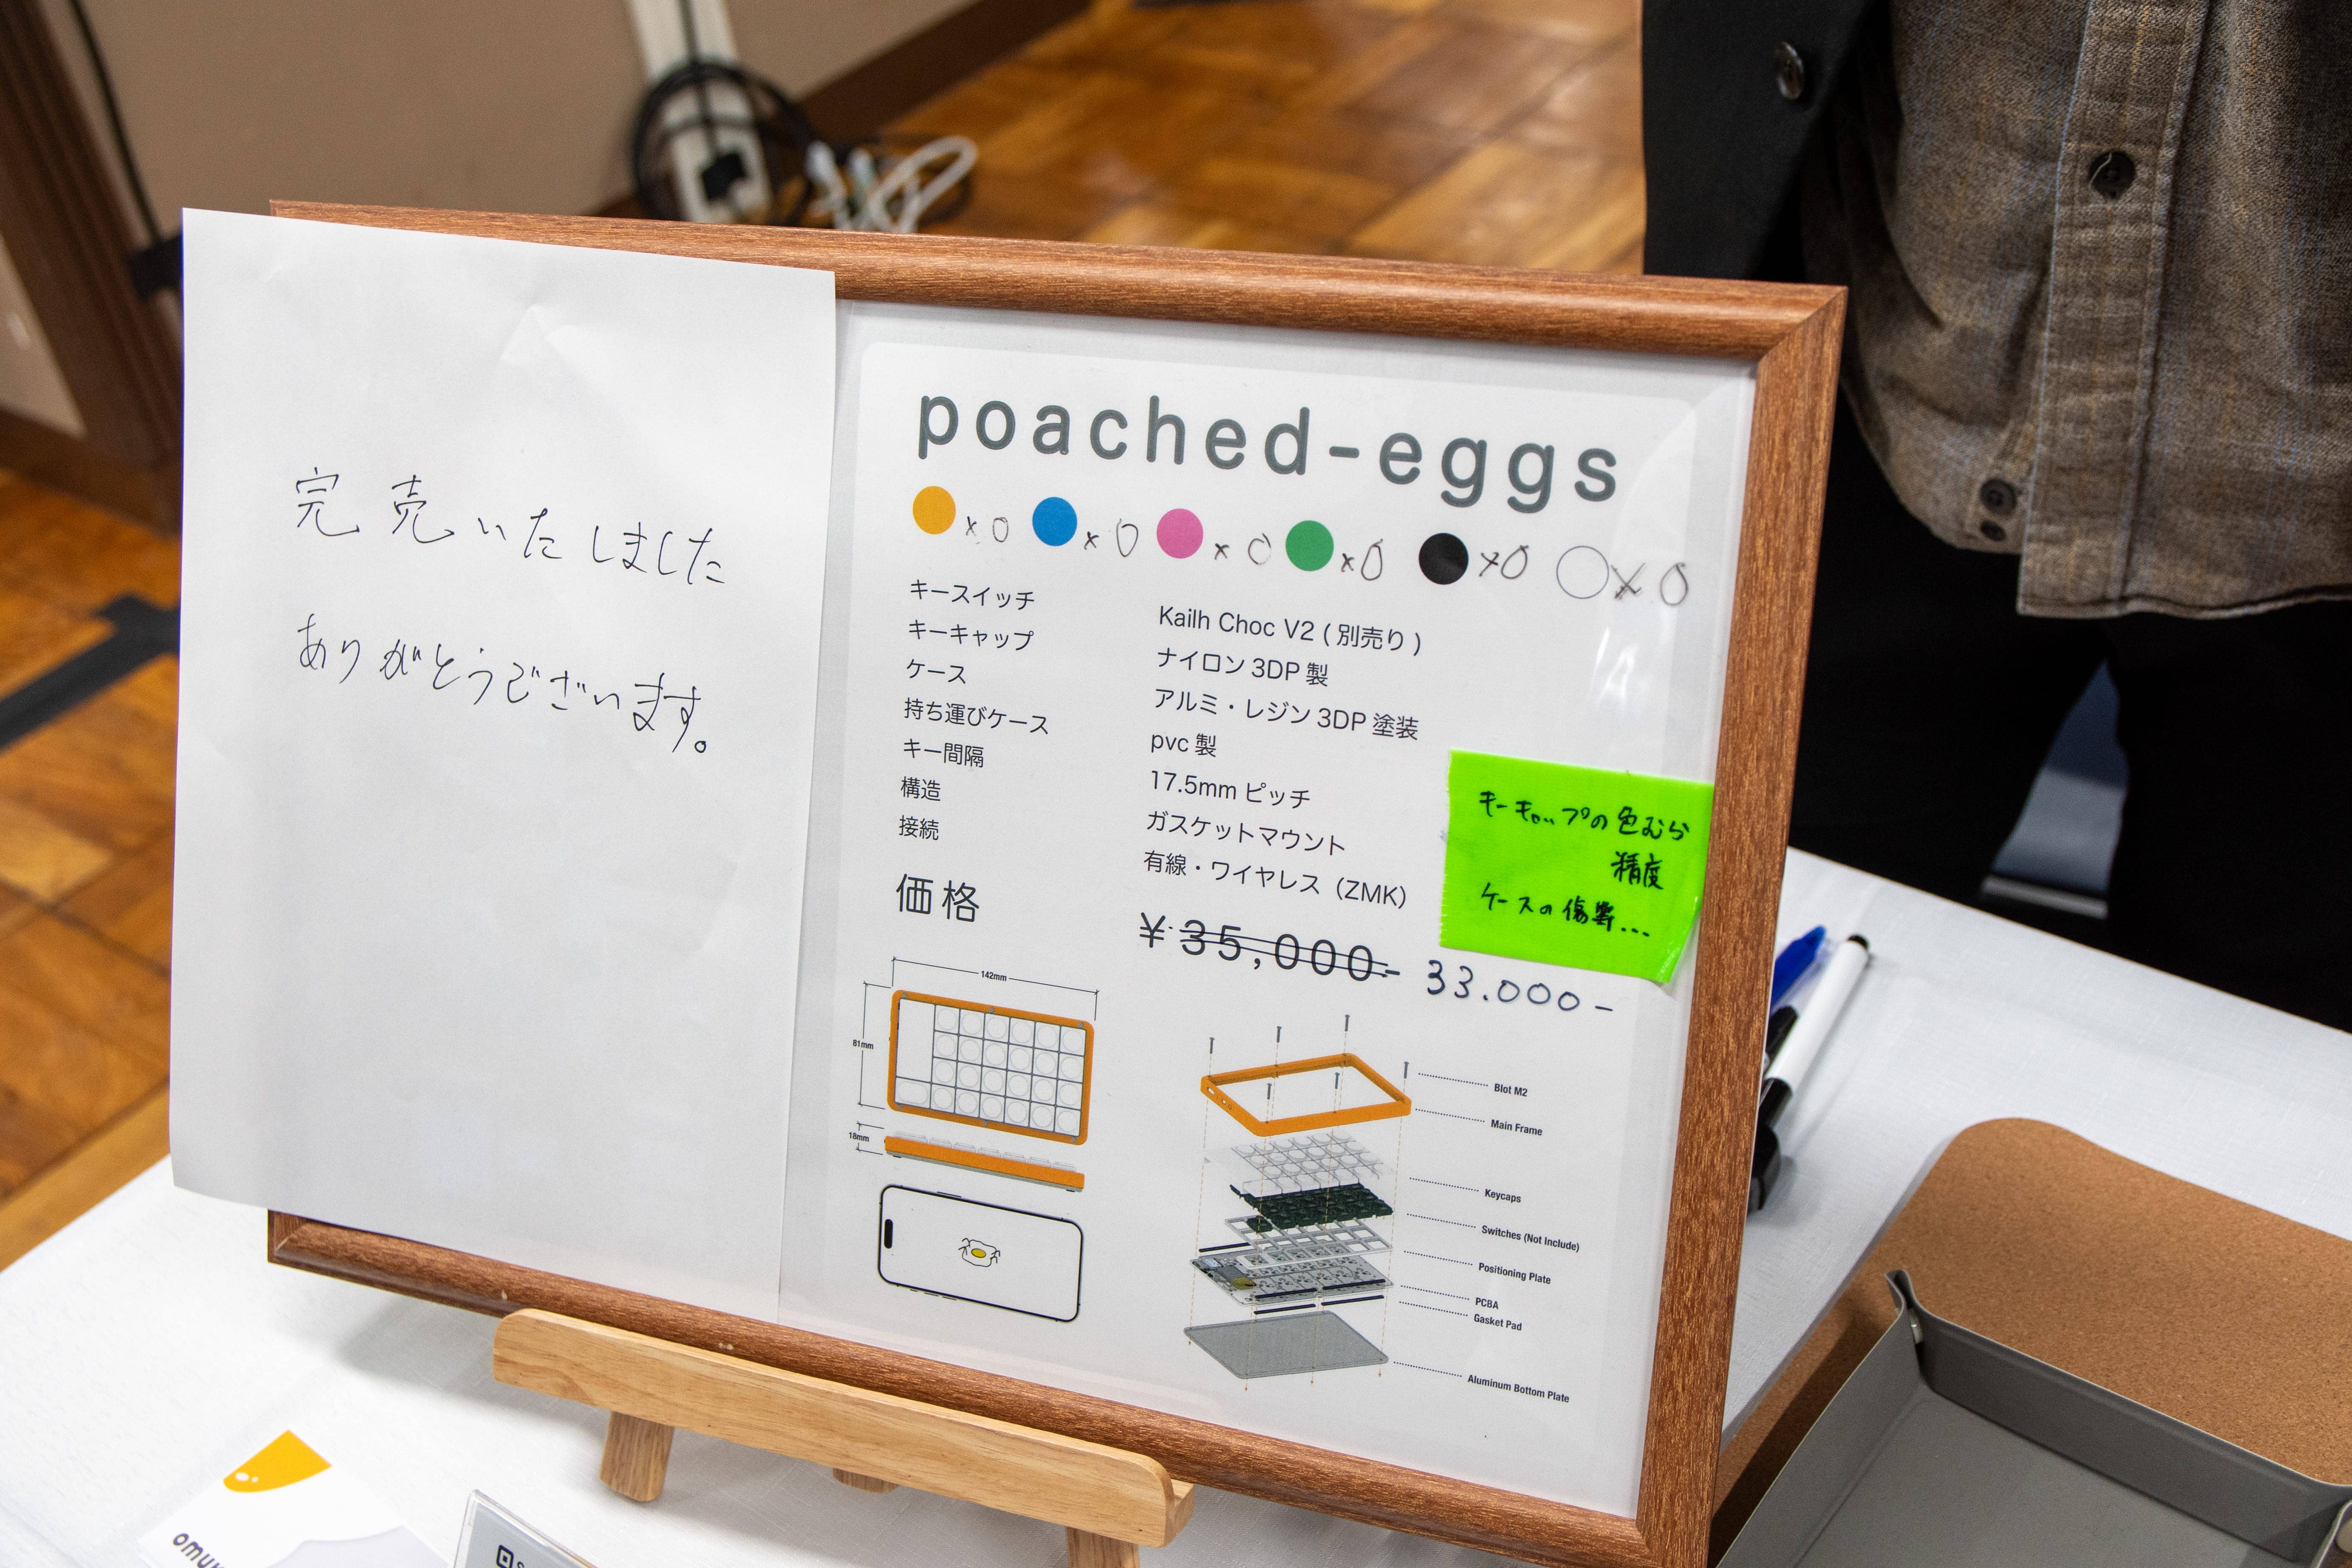 完売いたしました
ありがとうございます。
poached-eggs
x 0 x 0 x 0 x 0 x 0 x 0
キースイッチ Kailh Choc V2 ( 別売り )
キーキャップ ナイロン 3DP 製
ケース アルミ・レジン 3DP 塗装
持ち運びケース pvc 製
キー間隔 17.5mm ピッチ
構造 ガスケットマウント
接続 有線・ワイヤレス（ZMK）
価格 ¥35,000- 33.000-
キーキャップの色むら
精度
ケースの傷等...
142mm
81mm
18mm
Blot M2
Main Frame
Keycaps
Switches (Not Include)
Positioning Plate
PCBA
Gasket Pad
Aluminum Bottom Plate